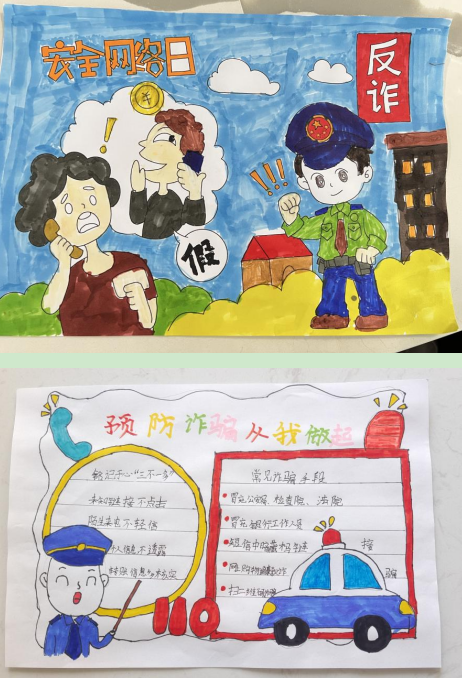 安全网络日
反诈
假
预防诈骗从我做起
未知链接不点击
陌生来电不轻信
个人信息不透露
转账信息多核实
常见诈骗手段
冒充公安局、检查院、法院
冒充银行工作人员
110